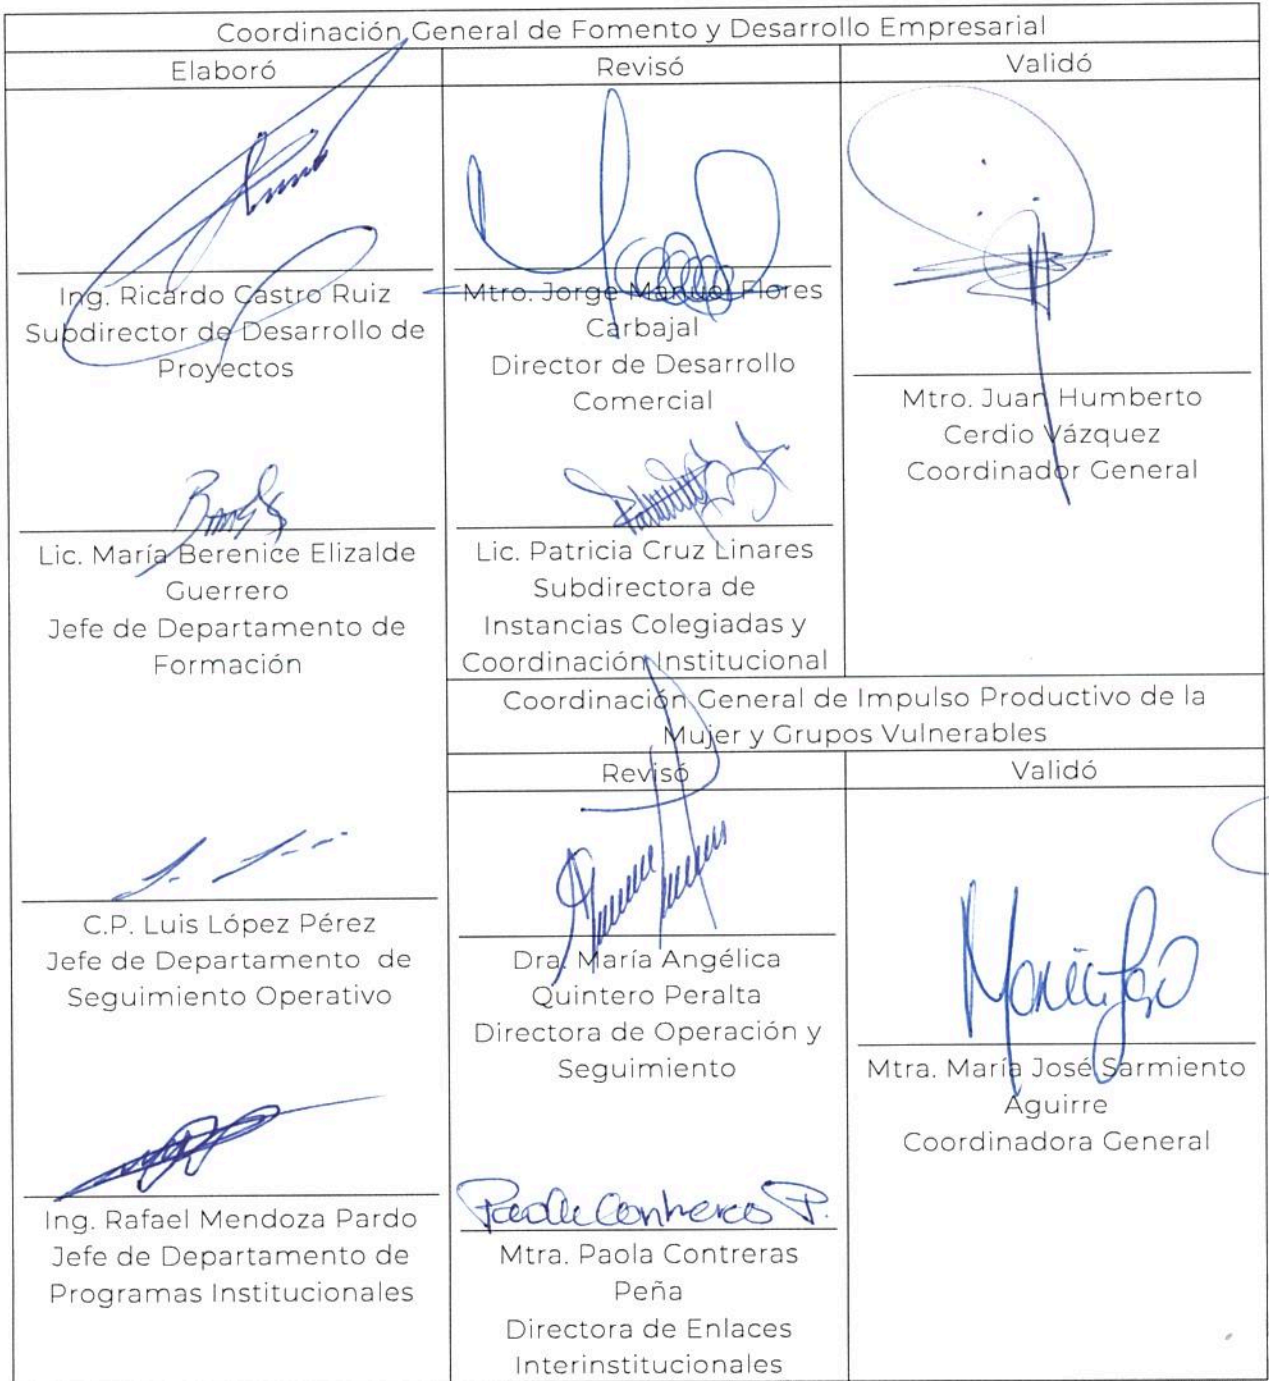 Coordinación General de Fomento y Desarrollo Empresarial
Elaboró
Revisó
Validó
Ing. Ricardo Castro Ruiz
Subdirector de Desarrollo de
Proyectos
Lic. María Berenice Elizalde
Guerrero
Jefe de Departamento de
Formación
C.P. Luis López Pérez
Jefe de Departamento de
Seguimiento Operativo
Ing. Rafael Mendoza Pardo
Jefe de Departamento de
Programas Institucionales
Mtro. Jorge Manuel Flores
Carbajal
Director de Desarrollo
Comercial
Lic. Patricia Cruz Linares
Subdirectora de
Instancias Colegiadas y
Coordinación Institucional
Mtro. Juan Humberto
Cerdio Vázquez
Coordinador General
Coordinación General de Impulso Productivo de la
Mujer y Grupos Vulnerables
Revisó
Validó
Dra. María Angélica
Quintero Peralta
Directora de Operación y
Seguimiento
Paola Contreras P.
Mtra. Paola Contreras
Peña
Directora de Enlaces
Interinstitucionales
Mtra. María José Sarmiento
Aguirre
Coordinadora General